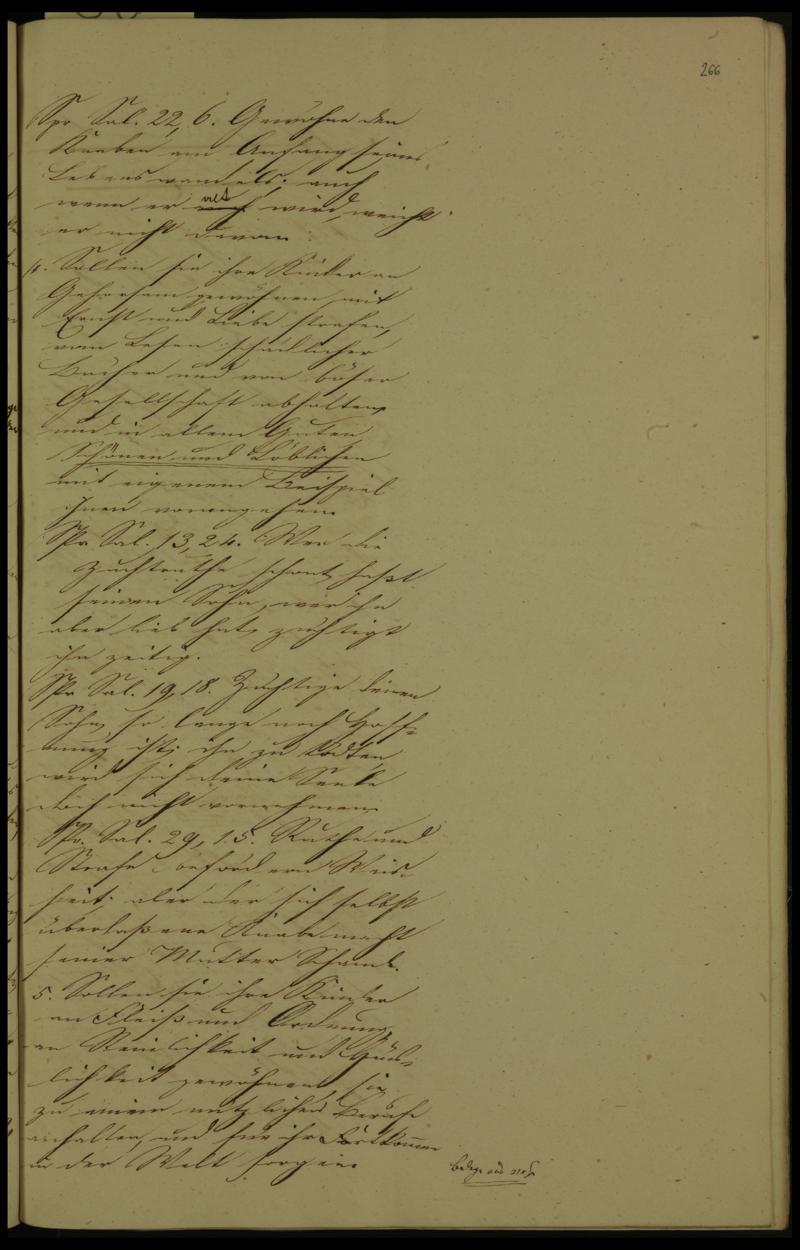 266
Spr. Sal. 22, 6. Gewöhne den
Knaben am Anfang seines
Lebens auch
wenn er alt wird, weicht
er nicht davon.
4. Sollen sie ihre Kinder an
Gehorsam gewöhnen, mit
Ernst und Liebe strafen,
vom Lesen schädlicher
Bücher und von böser
Gesellschaft abhalten,
und in allem Guten
Schönen und Löblichen
mit eigenem Beispiel
ihnen vorangehen.
Spr. Sal. 13, 24. Wer die
Zuchtruthe schont, haßt
seinen Sohn, wer ihn
aber lieb hat, züchtigt
ihn zeitig.
Spr. Sal. 19, 18. Züchtige deinen
Sohn, so lange noch Hoff-
nung ist; ihn zu tödten,
wird sich deine Seele
doch nicht vornehmen.
Spr. Sal. 29, 15. Ruthe und
Strafe befördern Weis-
heit; aber der sich selbst
überlaßene Knabe macht
seiner Mutter Schande.
5. Sollen sie ihre Kinder
an Fleiß und Ordnung,
an Reinlichkeit und Häus-
lichkeit gewöhnen, sie
zu einem nützlichen Berufe
anhalten, und für ihr Fortkommen
in der Welt sorgen.